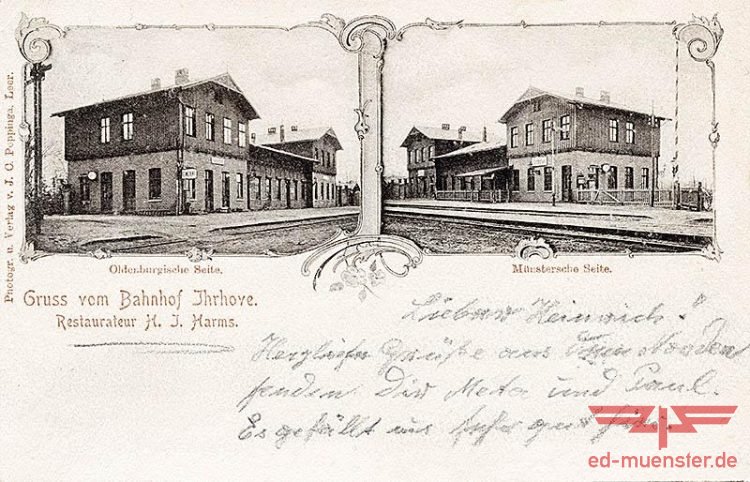 Photogr. u. Verlag v. J. C. Poppinga, Leer.
Oldenburgische Seite.
Münstersche Seite.
Gruss vom Bahnhof Ihrhove.
Restaurateur H. J. Harms.
Lieber Heinrich!
Herzliche Grüße aus Norden
senden Dir Meta und Paul.
Es gefällt uns sehr gut hier.
ed-muenster.de